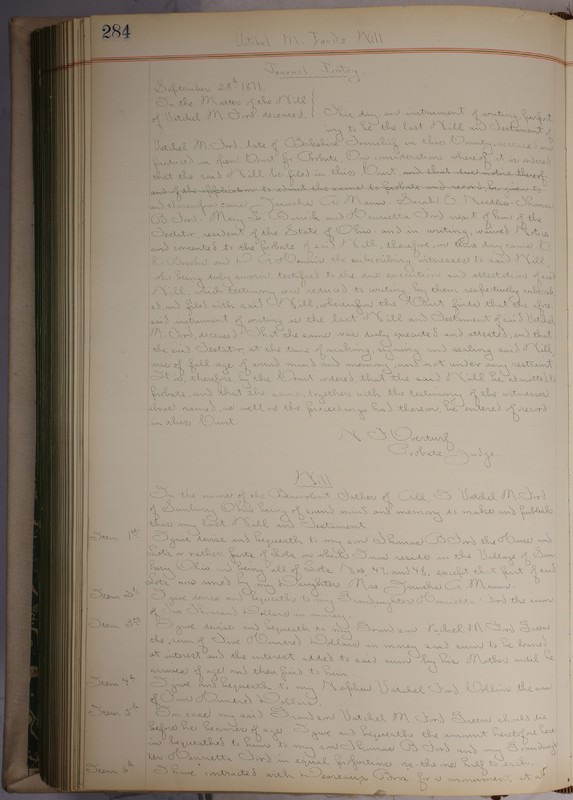 284
Vatchel M. Ford's Will
Journal Entry
September 28th 1891.
In the Matter of the Will
of Vatchel M. Ford deceased. This day an instrument of writing purport
ing to be the last Will and Testament of
Vatchel M. Ford late of Berkshire Township in this County, deceased was
produced in open Court for Probate, On consideration whereof it is ordered
that the said Will be filed in this Court, and that due notice thereof
and of the application to admit the same to probate and record, be given to
and whereupon came A. Mann Sarah Thomas
B Ford Mary and Henrietta Ford next of kin of the
Testator resident of the State of Ohio and in writing, waived Notice
and consented to the probate of said Will, therefore, on this day came
and the subscribing witnesses to said Will
who being duly sworn testified to the due execution and attestation of said
Will, which testimony was reduced to writing by them respectively subscrib
ed, and filed with said Will, whereupon the Court finds that the afore
said instrument of writing is the last Will and Testament of said Vatchel
M. Ford, deceased. That the same was duly executed and attested, and that
the said Testator, at the time of making, signing and sealing said Will
was of full age of sound mind and memory, and not under any restraint
It is, therefore, by the Court ordered, that the said Will be admitted to
probate, and that the same, together with the testimony of the witnesses
above named, as well as the proceedings had thereon, be entered of record
in this Court.
F. Overturf
Probate Judge
Will
In the name of the Benevolent Father of All, I Vatchel M. Ford
of Sunbury Ohio being of sound mind and memory do make and publish
this my last Will and Testament
Item 1st I give devise and bequeath to my son Thomas B Ford the House and
Lots or rather parts of Lots on which I now reside in the Village of Sun
bury Ohio and being all of Lots Nos. 47. and 48, except that part of said
Lots now owned by my Daughter Mrs. A. Mann.
Item 2d I give devise and bequeath to my Granddaughter Henrietta Ford the sum
of Thousand Dollars in money
Item 3rd I give devise and bequeath to my Grandson Vatchel M. Ford
the sum of Five Hundred Dollars in money said sum to be loaned
at interest and the interest added to said sum by his Mother until he
arrives of age and then paid to him.
Item 4th I give and bequeath to my Nephew Vatchel Ford the sum
of Hundred Dollars.
Item 5th In case my said Grandson Vatchel M. Ford should die
before he becomes of age I give and bequeath the amount heretofore here
in bequeathed to him to my son Thomas B Ford and my Granddaugh
ter Henrietta Ford in equal proportions viz the one half to each.
Item 6th I have contracted with Bros. for a monument, at a